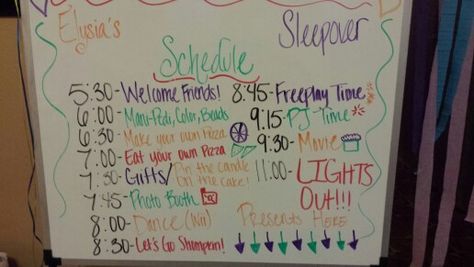 Elysia's Sleepover
Schedule
5:30-Welcome Friends!
6:00-Mani-Pedi, Color, Beads
6:30-Make your own Pizza
7:00-Eat your own Pizza
7:30-Gifts/Pin the candle
On the cake!
7:45-Photo Booth
8:00-Dance (Wii)
8:30-Let's Go Shompkin!
8:45-Freeplay Time
9:15-PJ Time
9:30-Movie
11:00-LIGHTS
OUT!!!
Presents Here